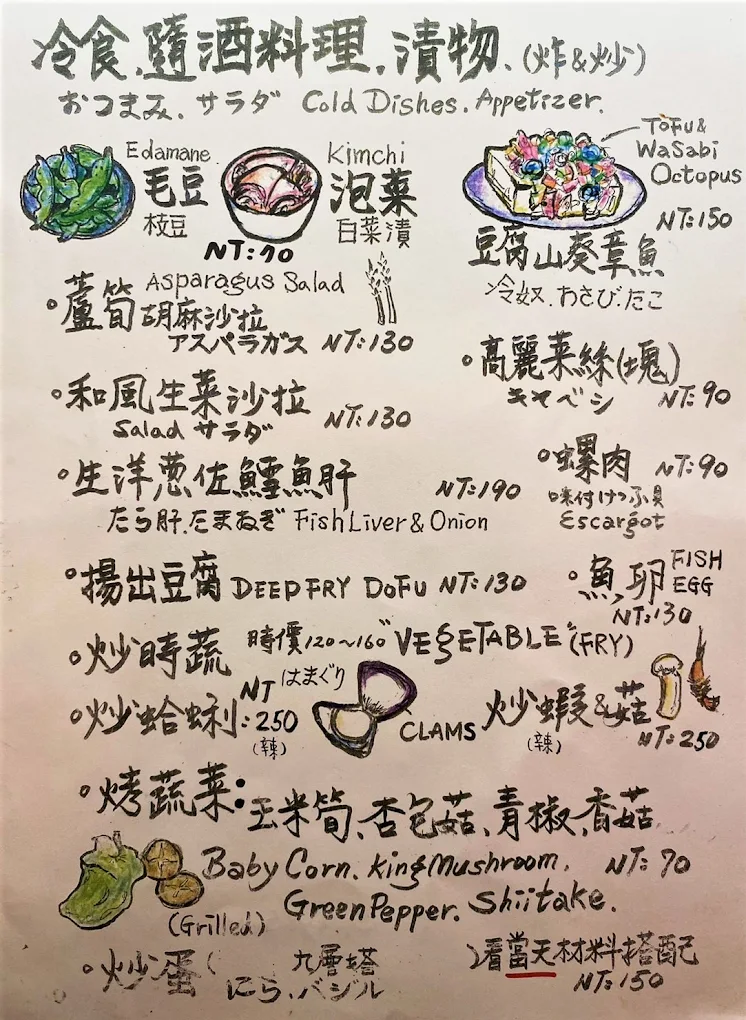 冷食、隨酒料理、漬物、(炸&炒)
おつまみ、サラダ Cold Dishes. Appetizer.
Edamane
毛豆
枝豆
Kimchi
泡菜
白菜漬
NT:70
Tofu&
Wasabi
Octopus
NT:150
豆腐山葵章魚
冷奴.わさび.たこ
Asparagus Salad
蘆筍胡麻沙拉
アスパラガス NT:130
高麗菜絲(塊)
NT:90
和風生菜沙拉 NT:130
Salad サラダ
生洋葱佐鱈魚肝 NT:190
たら肝.たまねぎ Fish Liver & Onion
螺肉 NT:90
Escargot
揚出豆腐 DEEP FRY DOFU NT:130
魚卵 FISH EGG
NT:130
炒時蔬 時價120~160" VEGETABLE"(FRY)
炒蛤蜊:NT 250
(辣)
はまぐり
CLAMS
炒蝦&菇
(辣)
NT:250
烤蔬菜:玉米筍、杏包菇、青椒、香菇
Baby Corn. King Mushroom. NT:70
Green Pepper. Shiitake.
(Grilled)
炒蛋(九層塔
にら、バジル
)看當天材料搭配
NT:150